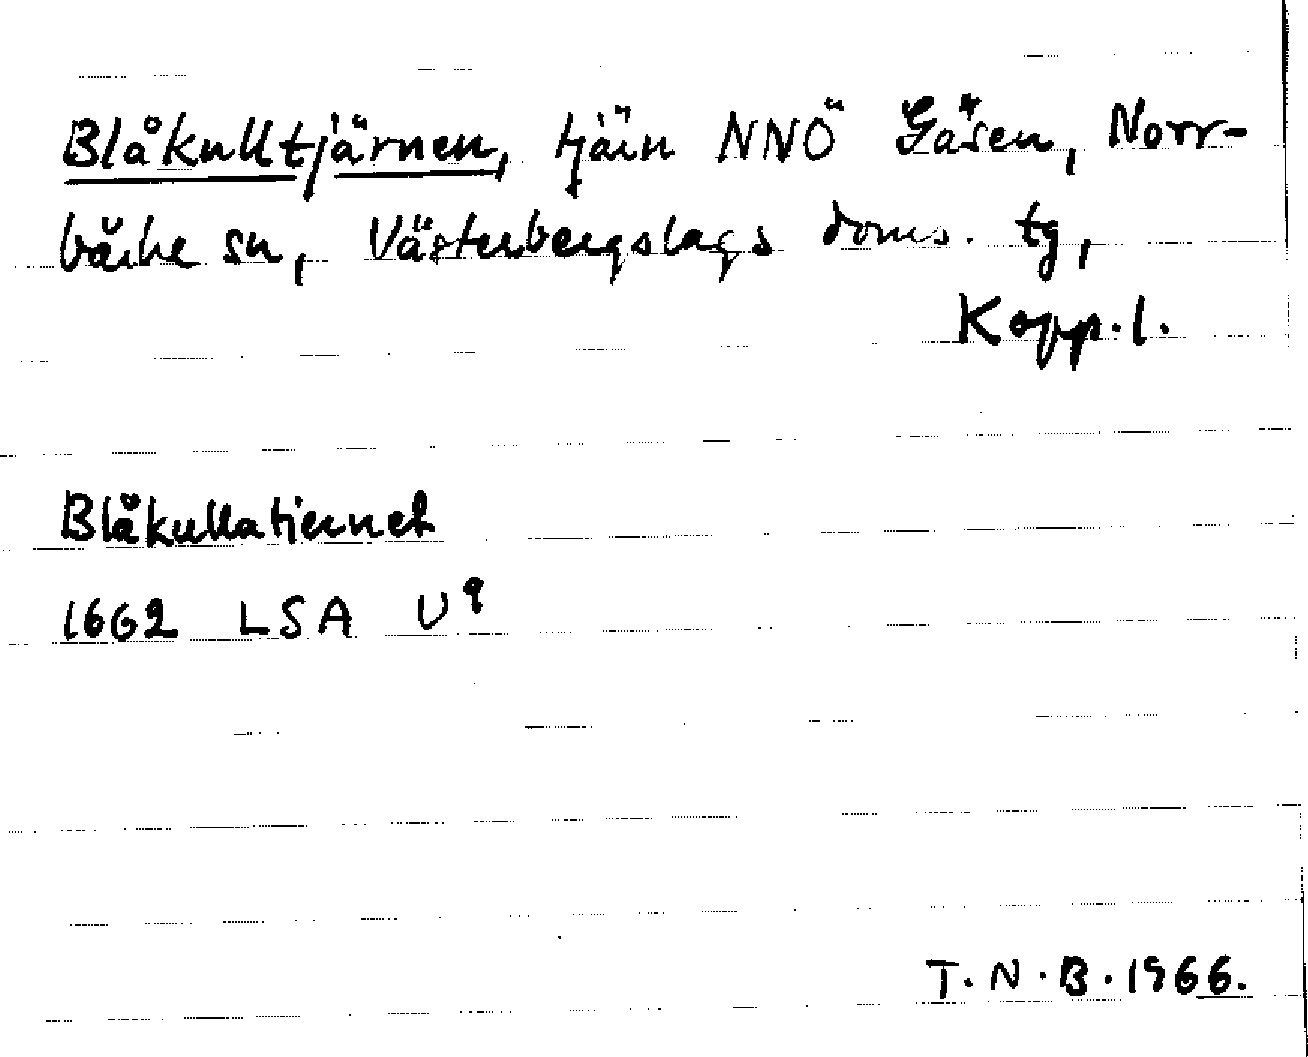 Blåkulltjärnen, tjärn NNÖ Gåsen, Norr-
bärke sn, Västerbergslags doms. tg,
Kopp. l.
Blåkullatiernet
1662 LSA U9
T. N. B. 1966.